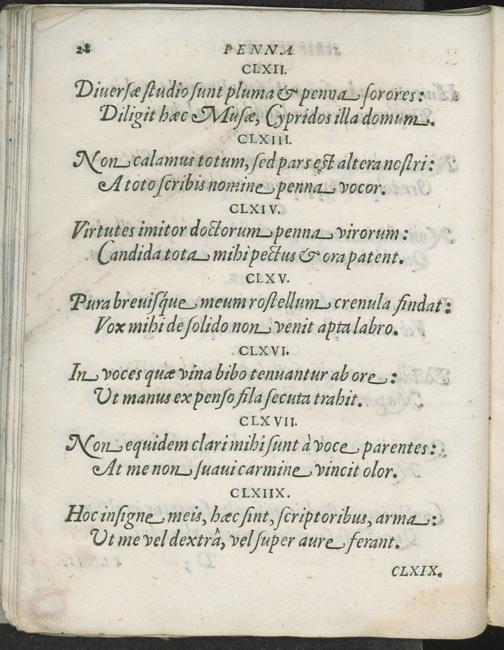 28 PENNA
CLXII.
Diuersæ studio sunt pluma & penna sorores:
Diligit hæc Musæ, Cypridos illa domum.
CLXIII.
Non calamus totum, sed pars est altera nostri:
A toto scribis nomine penna vocor.
CLXIV.
Virtutes imitor doctorum penna virorum:
Candida tota mihi pectus & ora patent.
CLXV.
Pura breuisque meum rostellum crenula findat:
Vox mihi de solido non venit apta labro.
CLXVI.
In voces quæ vina bibo tenuantur ab ore:
Ut manus ex penso fila secuta trahit.
CLXVII.
Non equidem clari mihi sunt à voce parentes:
At me non suaui carmine vincit olor.
CLXIIX.
Hoc insigne meis, hæc sint, scriptoribus, arma:
Ut me vel dextrâ, vel super aure ferant.
CLXIX.